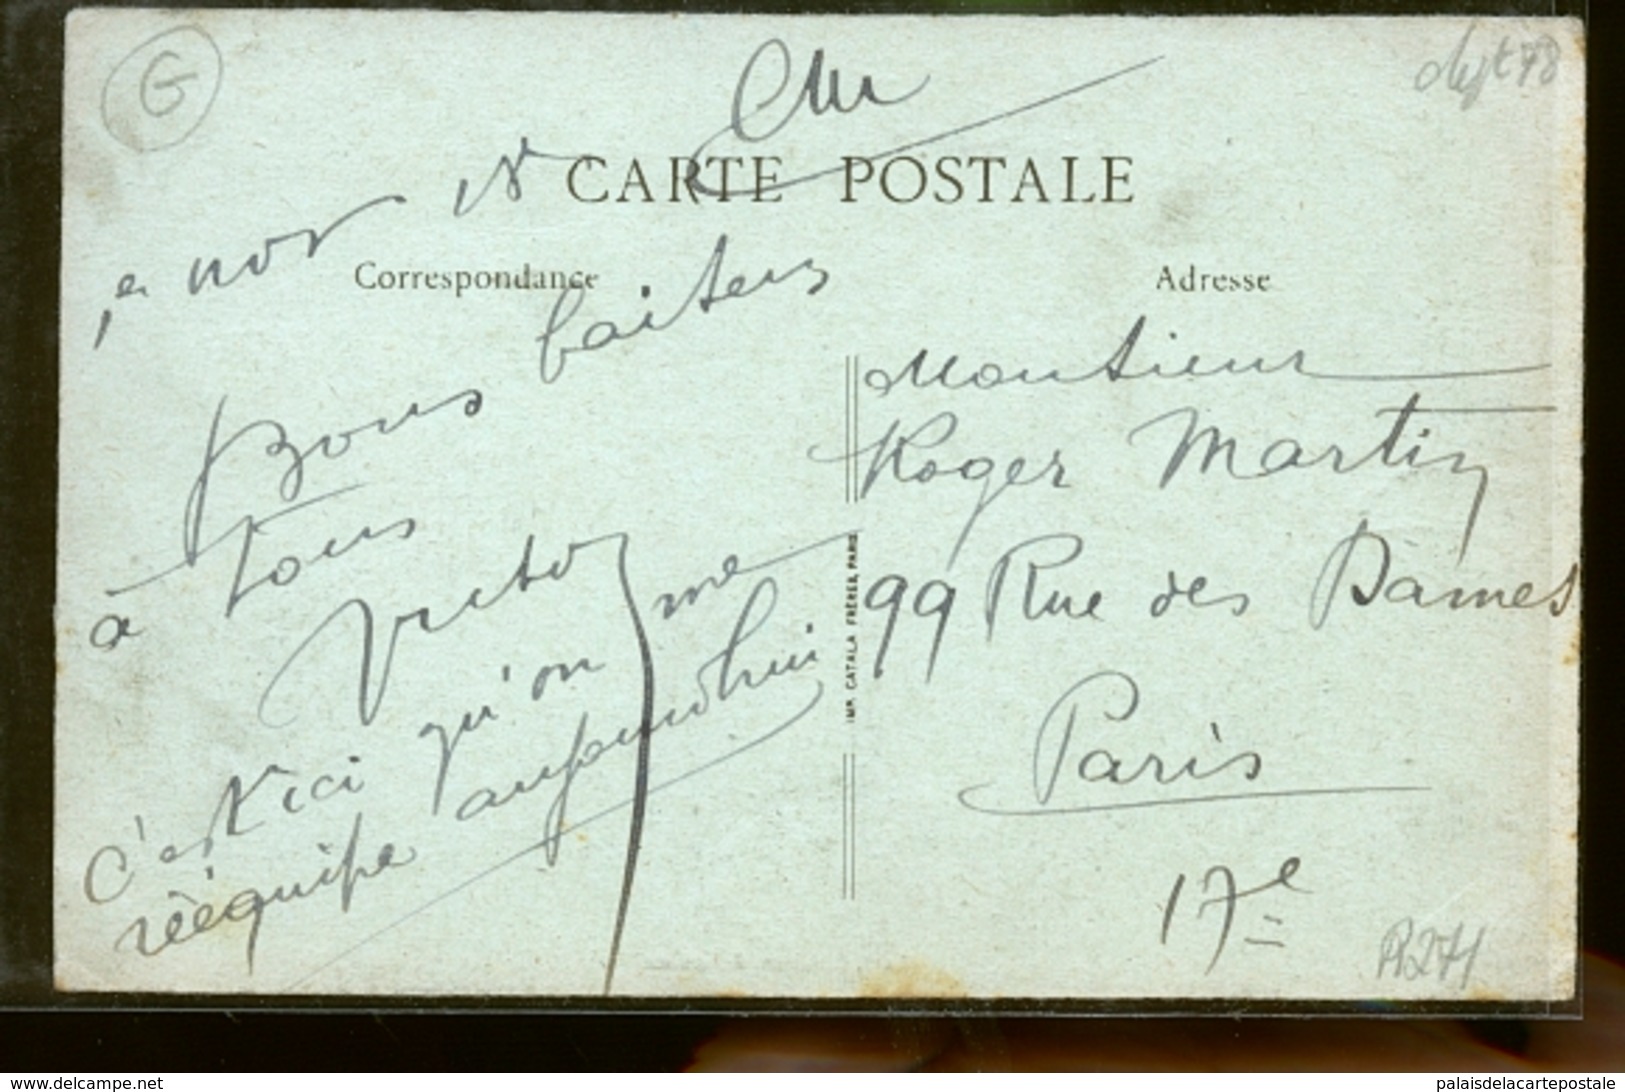 G
dept 78
CARTE POSTALE
Correspondance
Adresse
nov 18
Bons baisers
à tous
Victor
c'est ici qu'on me
rééquipe aujourdhui
IMP. CATALA FRÈRES, PARIS
Monsieur
Roger Martin
99 Rue des Dames
Paris
17e
www.delcampe.net
palaisdelacartepostale